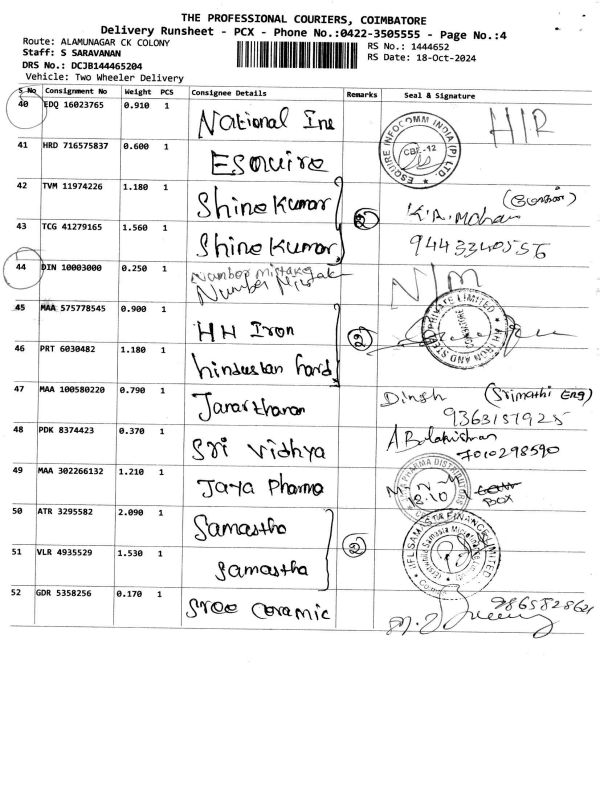 THE PROFESSIONAL COURIERS, COIMBATORE
Delivery Runsheet - PCX - Phone No.:0422-3505555 - Page No.:4
Route: ALAMUNAGAR CK COLONY
RS No.: 1444652
Staff: S SARAVANAN
RS Date: 18-Oct-2024
DRS No.: DCJB144465204
Vehicle: Two Wheeler Delivery
S No Consignment No Weight PCS Consignee Details Remarks Seal & Signature
40 EDQ 16023765 0.910 1 National Ine H/R
41 HRD 716575837 0.600 1 Esquire
ESQUIRE INFOCOMM INDIA (P) LTD. CBE-12
42 TVM 11974226 1.180 1 Shine Kumar K.A. Mohan
43 TCG 41279165 1.560 1 Shine Kumar 9443340556
44 DIN 10003000 0.250 1 Number mistake N/M
Number Mistake
45 MAA 575778545 0.900 1 HH Iron
HH IRON AND STEEL PRIVATE LIMITED COIMBATORE
46 PRT 6030482 1.180 1 hindustan hard
47 MAA 100580220 0.790 1 Janarthanan Dinsh (Srimathi Eng)
9363157925
48 PDK 8374423 0.370 1 Sri Vidhya A Balakrishnan
7010298590
49 MAA 302266132 1.210 1 Jaya Pharma 18.10 BOX
PHARMA DISTRIBUTORS
50 ATR 3295582 2.090 1 Samastha
IIFL SAMASTA FINANCE LIMITED
51 VLR 4935529 1.530 1 Samastha
52 GDR 5358256 0.170 1 Sree Ceramic 9865828621